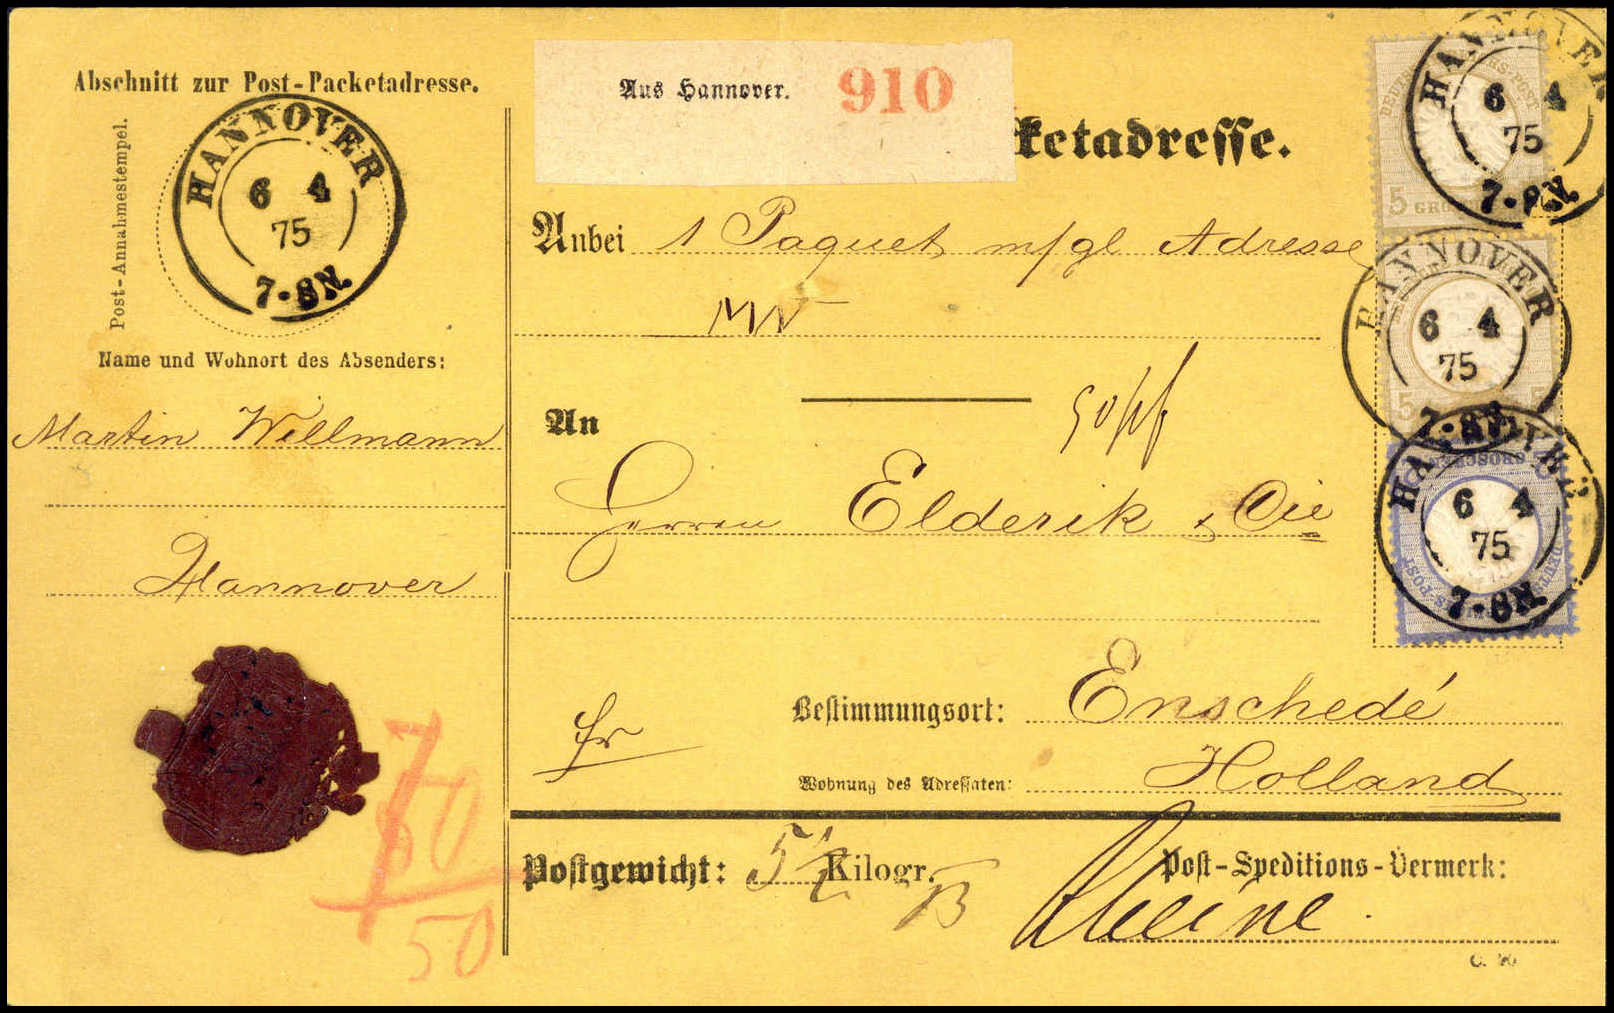 Abschnitt zur Post-Packetadresse.
Post-Annahmestempel.
HANNOVER
6 4
75
7-8N.
Name und Wohnort des Absenders:
Martin Willmann
Hannover
50
Aus Hannover. 910
cketadresse.
Anbei 1 Paquet m/gl Adresse
MW
An
Herren Elderik & Cie
fr
Bestimmungsort: Enschedé
Wohnung des Adressaten: Holland
Postgewicht: 5 1/2 Kilogr.
Post-Speditions-Vermerk:
Rheine.
HANNOVER
6 4
75
7-8N.
5 GRO
HANNOVER
6 4
75
7-8N.
5
HANNOVER
6 4
75
7-8N.
GROSCHEN